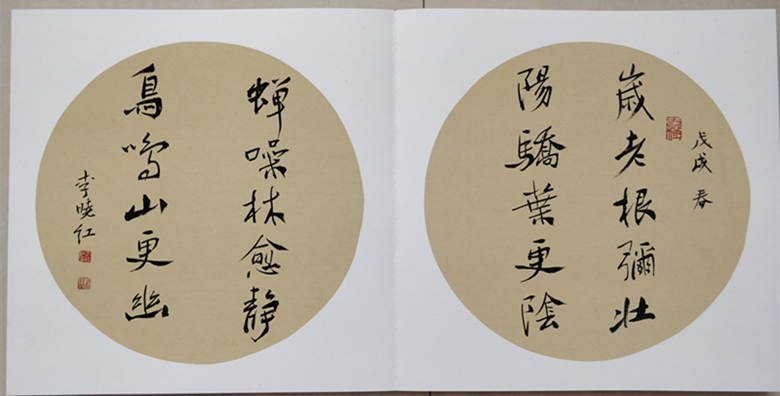 戊戌春
歲老根彌壯
陽驕葉更陰
蟬噪林愈靜
鳥鳴山更幽
李曉红